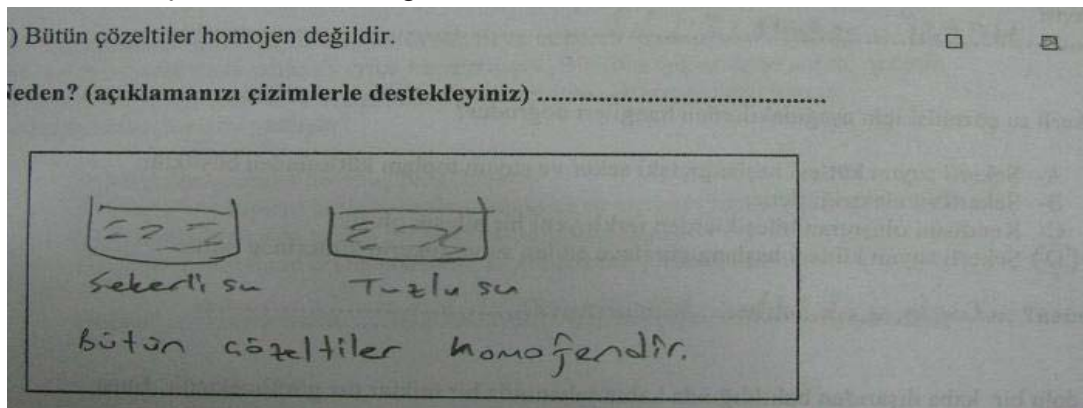 ) Bütün çözeltiler homojen değildir.
Neden? (açıklamanızı çizimlerle destekleyiniz) ......................................
Şekerli su Tuzlu su
Bütün çözeltiler homojendir.